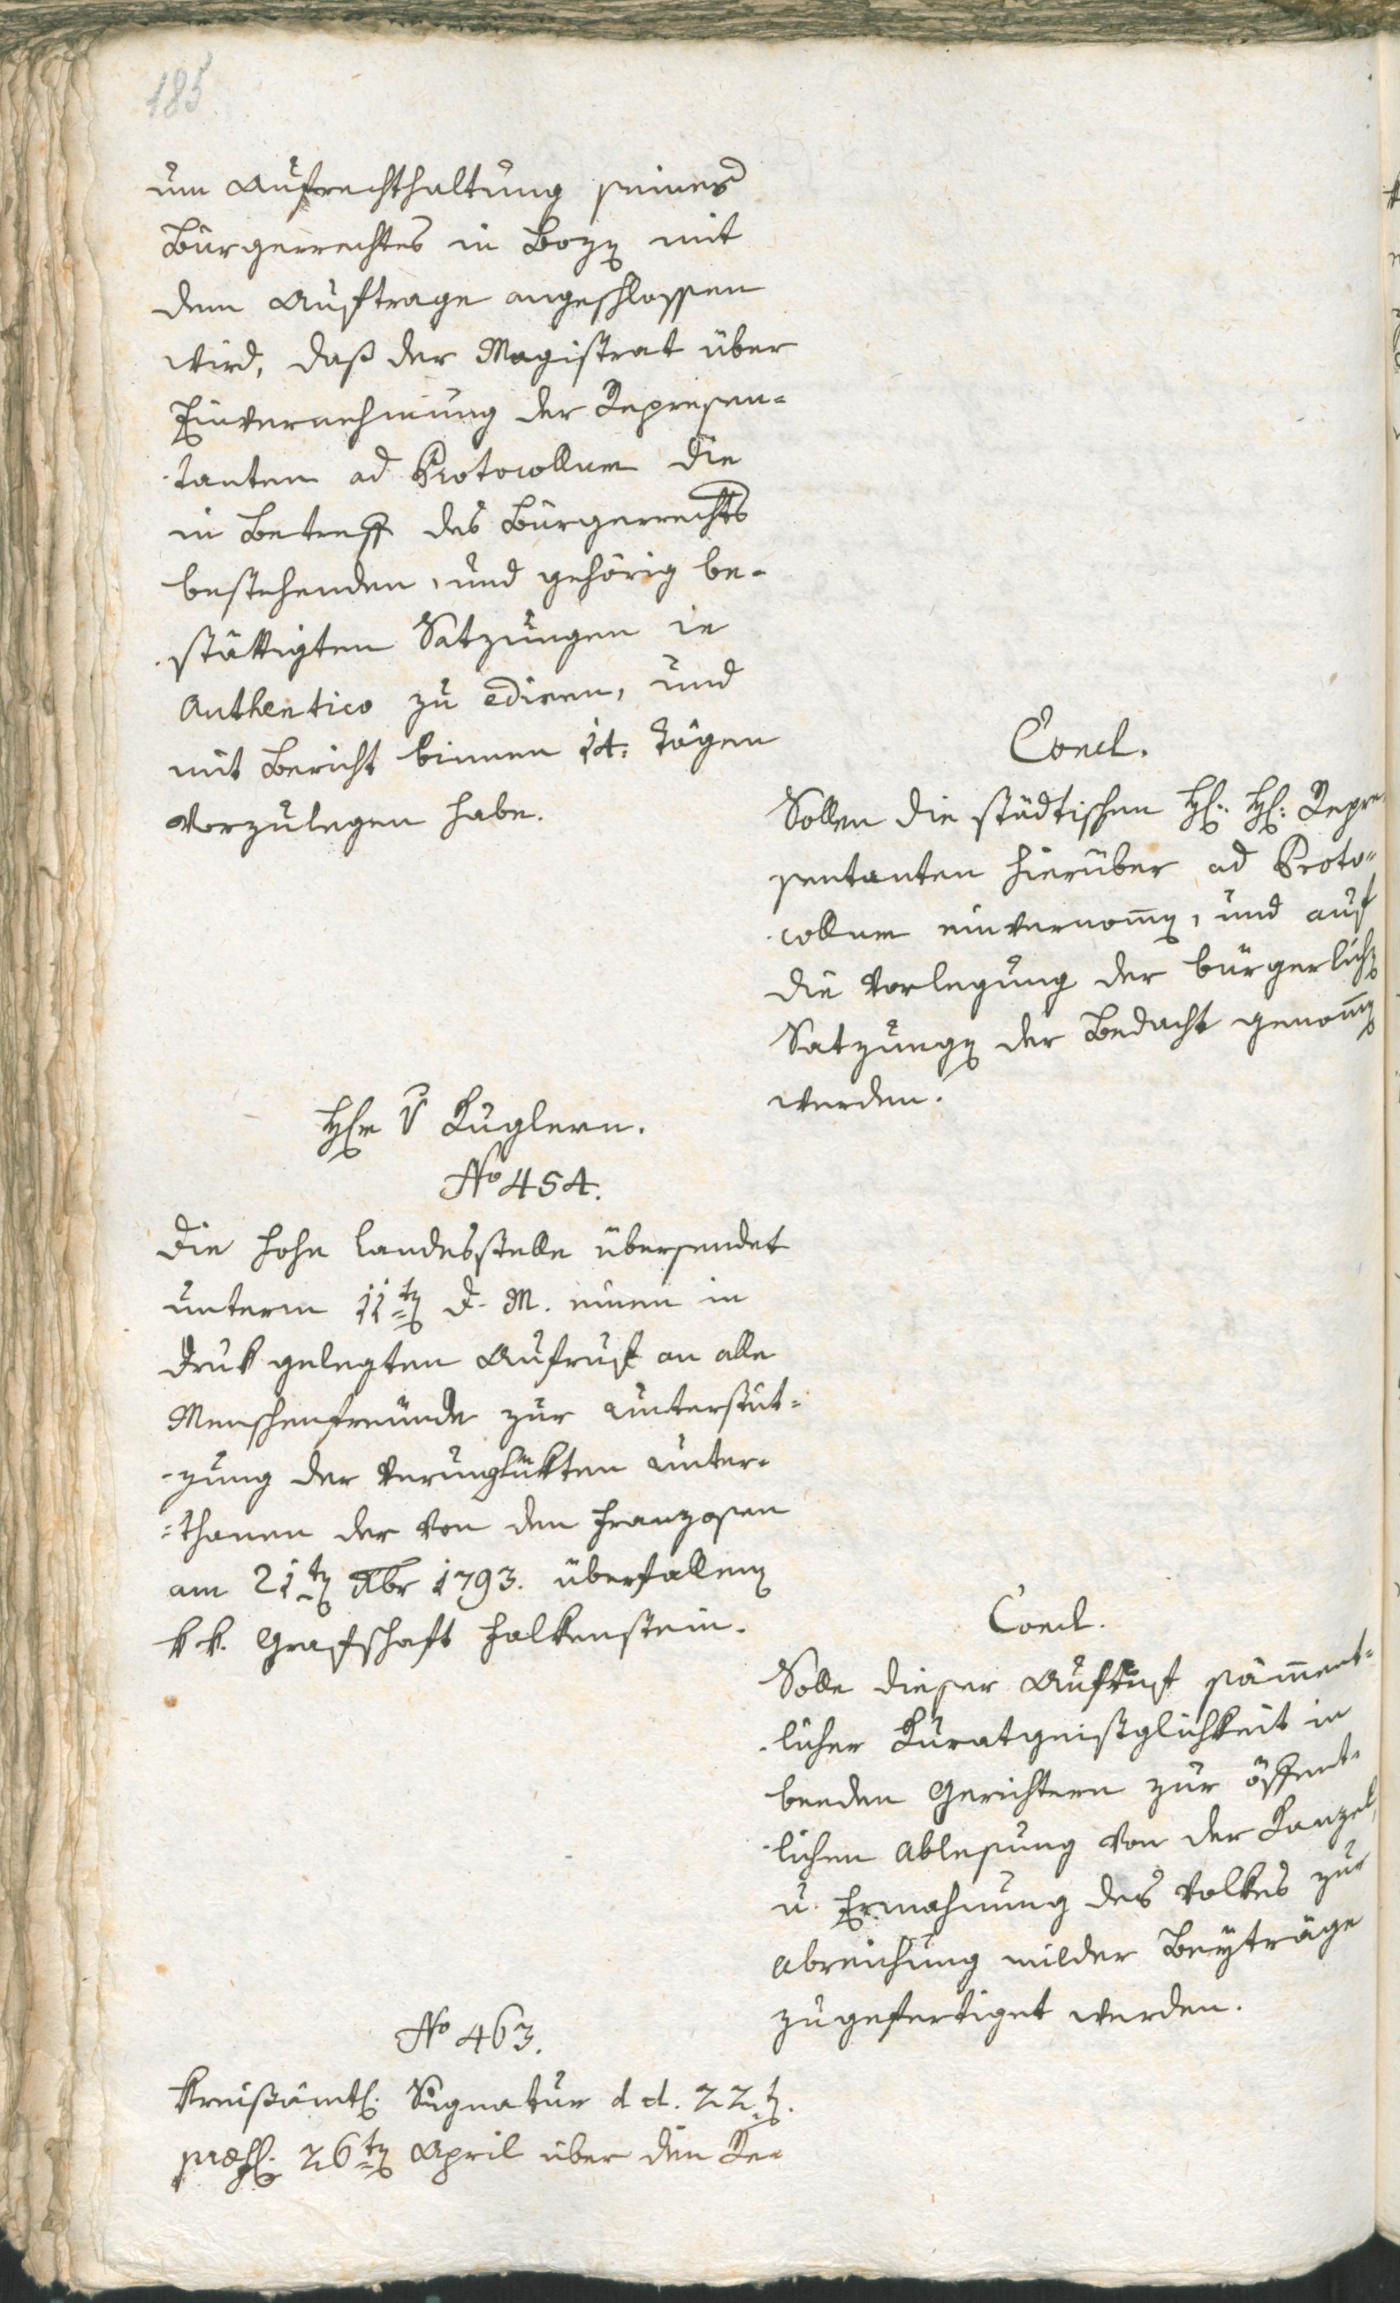 185
um Aufrechthaltung seines
Bürgerrechtes in Bozen mit
dem Auftrage angeschlossen
wird, daß der Magistrat über
Einvernehmung der Represen=
tanten ad Protocollum die
in Betreff des Bürgerrechts
bestehenden, und gehörig be-
stättigten Satzungen in
Authentico zu edieren, und
mit Bericht binnen 14: Tägen
vorzulegen habe.
Concl.
Sollen die städtischen H: H: Repre
sentanten hierüber ad Proto=
collum einvernommen, und auf
die Vorlegung der bürgerlichen
Satzungen der Bedacht genommen
werden.
Hr v Kuglern.
No 454.
Die hohe Landesstelle übersendet
unterm 11ten d. M. einen in
Druk gelegten Aufruf an alle
Menschenfreunde zur Unterstüt=
-zung der Verunglükten Unter=
=thanen der von den Franzosen
am 21ten Xbr 1793. überfallenen
k k. Grafschaft Falkenstein.
Concl.
Solle dieser Aufruf sämment=
licher Kuratgeistlichkeit in
beeden Gerichtern zur öffent=
lichen Ablesung von der Kanzel,
u. Ermahnung des Volkes zur
Abreichung milder Beyträge
zugefertiget werden.
No 463.
Kreißämtl: Signatur d d. 22t.
præs: 26ten April über den Re=